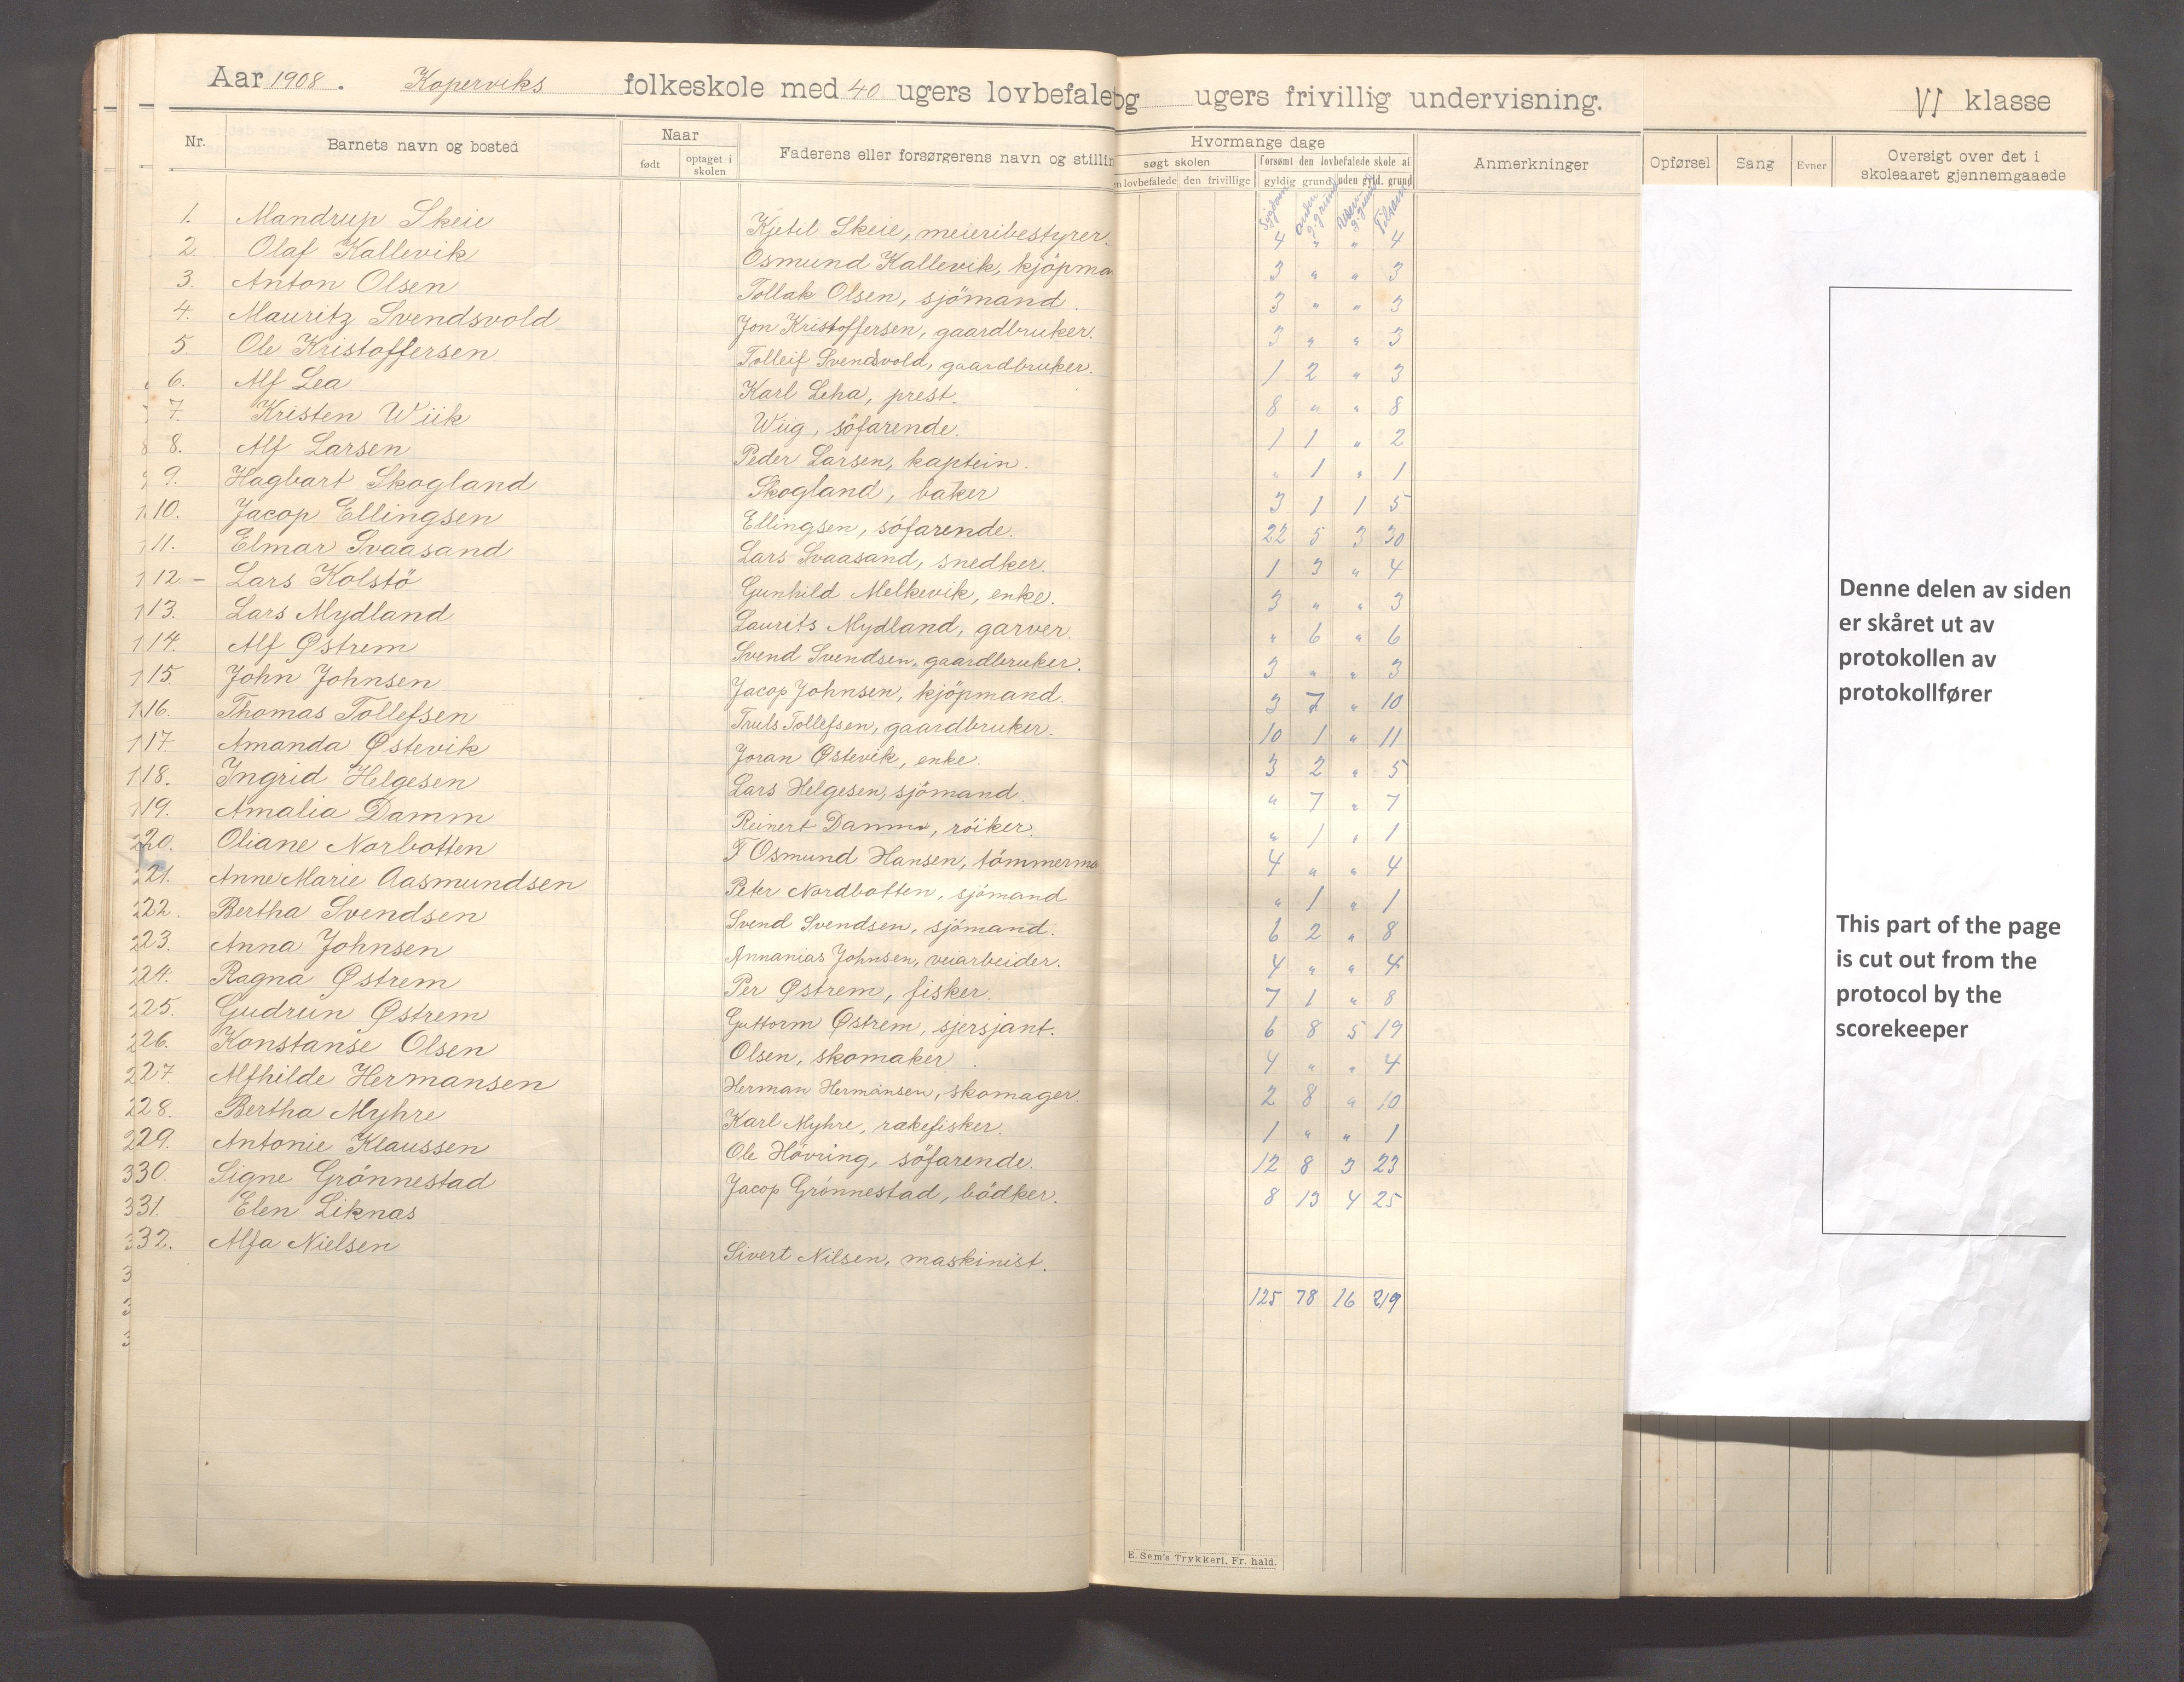 Aar 1908. Koperviks folkeskole med 40 ugers lovbefalet og ugers frivillig undervisning. VI klasse
Nr. Barnets navn og bosted Naar født optaget i skolen Faderens eller forsørgerens navn og stillin Hvormange dage søgt skolen en lovbefalede den frivillige forsømt den lovbefalede skole af gyldig grund uden gyld. grund Anmerkninger Opførsel Sang Evner Oversigt over det i skoleaaret gjennemgaaede
1. Mandrup Skeie Kjetil Skeie, meieribestyrer. 4 " " 4
2. Olaf Kallevik Osmund Kallevik, kjöpma 3 " " 3
3. Anton Olsen Tollak Olsen, sjömand. 3 " " 3
4. Mauritz Svendsvold Jon Kristoffersen, gaardbruker. 3 " " 3
5. Ole Kristoffersen Tolleif Svendsvold, gaardbruker. 1 2 " 3
6. Alf Lea Karl Leha, prest. 8 " " 8
7. Kristen Wiik Wiig, söfarende. 1 1 " 2
8. Alf Larsen Peder Larsen, kaptein. " 1 " 1
9. Hagbart Skogland Skogland, baker 3 1 1 5
10. Jacop Ellingsen Ellingsen, söfarende. 22 5 3 30
11. Elmar Svaasand Lars Svaasand, snedker. 1 3 " 4
12. – Lars Kolstö Gunhild Melkevik, enke. 3 " " 3
13. Lars Mydland Laurits Mydland, garver. " 6 " 6
14. Alf Østrem Svend Svendsen, gaardbruker. 3 " " 3
15. John Johnsen Jacop Johnsen, kjöpmand. 3 7 " 10
16. Thomas Tollefsen Truls Tollefsen, gaardbruker. 10 1 " 11
17 Amanda Østevik Joran Østevik, enke. 3 2 " 5
18. Ingrid Helgesen Lars Helgesen, sjömand. " 7 " 7
19. Amalia Damm Reinert Damm, röiker. " 1 " 1
20. Oliane Norbotten T Osmund Hansen, tömmerma 4 " " 4
21. Anne Marie Aasmundsen Peter Nordbotten, sjömand " 1 " 1
22. Bertha Svendsen Svend Svendsen, sjömand. 6 2 " 8
23. Anna Johnsen Annanias Johnsen, veiarbeider. 4 " " 4
24. Ragna Østrem Per Østrem, fisker. 7 1 " 8
25. Gudrun Østrem Guttorm Østrem, sjersjant. 6 8 5 19
26. Konstanse Olsen Olsen, skomaker. 4 " " 4
27. Alfhilde Hermansen Herman Hermansen, skomager. 2 8 " 10
28. Bertha Myhre Karl Myhre, rakefisker. 1 " " 1
29. Antonie Klaussen Ole Hövring, söfarende. 12 8 3 23
30. Signe Grönnestad Jacop Grönnestad, bödker. 8 13 4 25
31. Elen Liknas
32. Alfa Nielsen Sivert Nilsen, maskinist.
125 78 16 219
E. Sem's Trykkeri, Fr. hald.
Denne delen av siden
er skåret ut av
protokollen av
protokollfører
This part of the page
is cut out from the
protocol by the
scorekeeper